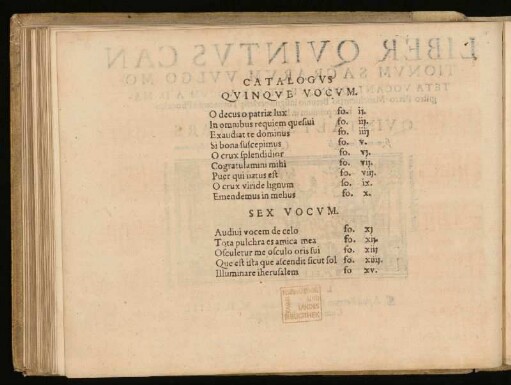 CATALOGVS
QVINQVE VOCVM.
O decus o patriæ lux fo. ij.
In omnibus requiem quesiui fo. iij.
Exaudiat te dominus fo. iiij
Si bona suscepimus fo. v.
O crux splendidior fo. vj.
Cogratulamini mihi fo. vij.
Puer qui natus est fo. viij.
O crux viride lignum fo. ix.
Emendemus in melius fo. x.
SEX VOCVM.
Audiui vocem de celo fo. xj
Tota pulchra es amica mea fo. xij.
Osculetur me osculo oris sui fo. xiij
Que est ista que ascendit sicut sol fo. xiiij.
Illuminare iherusalem fo. xv.